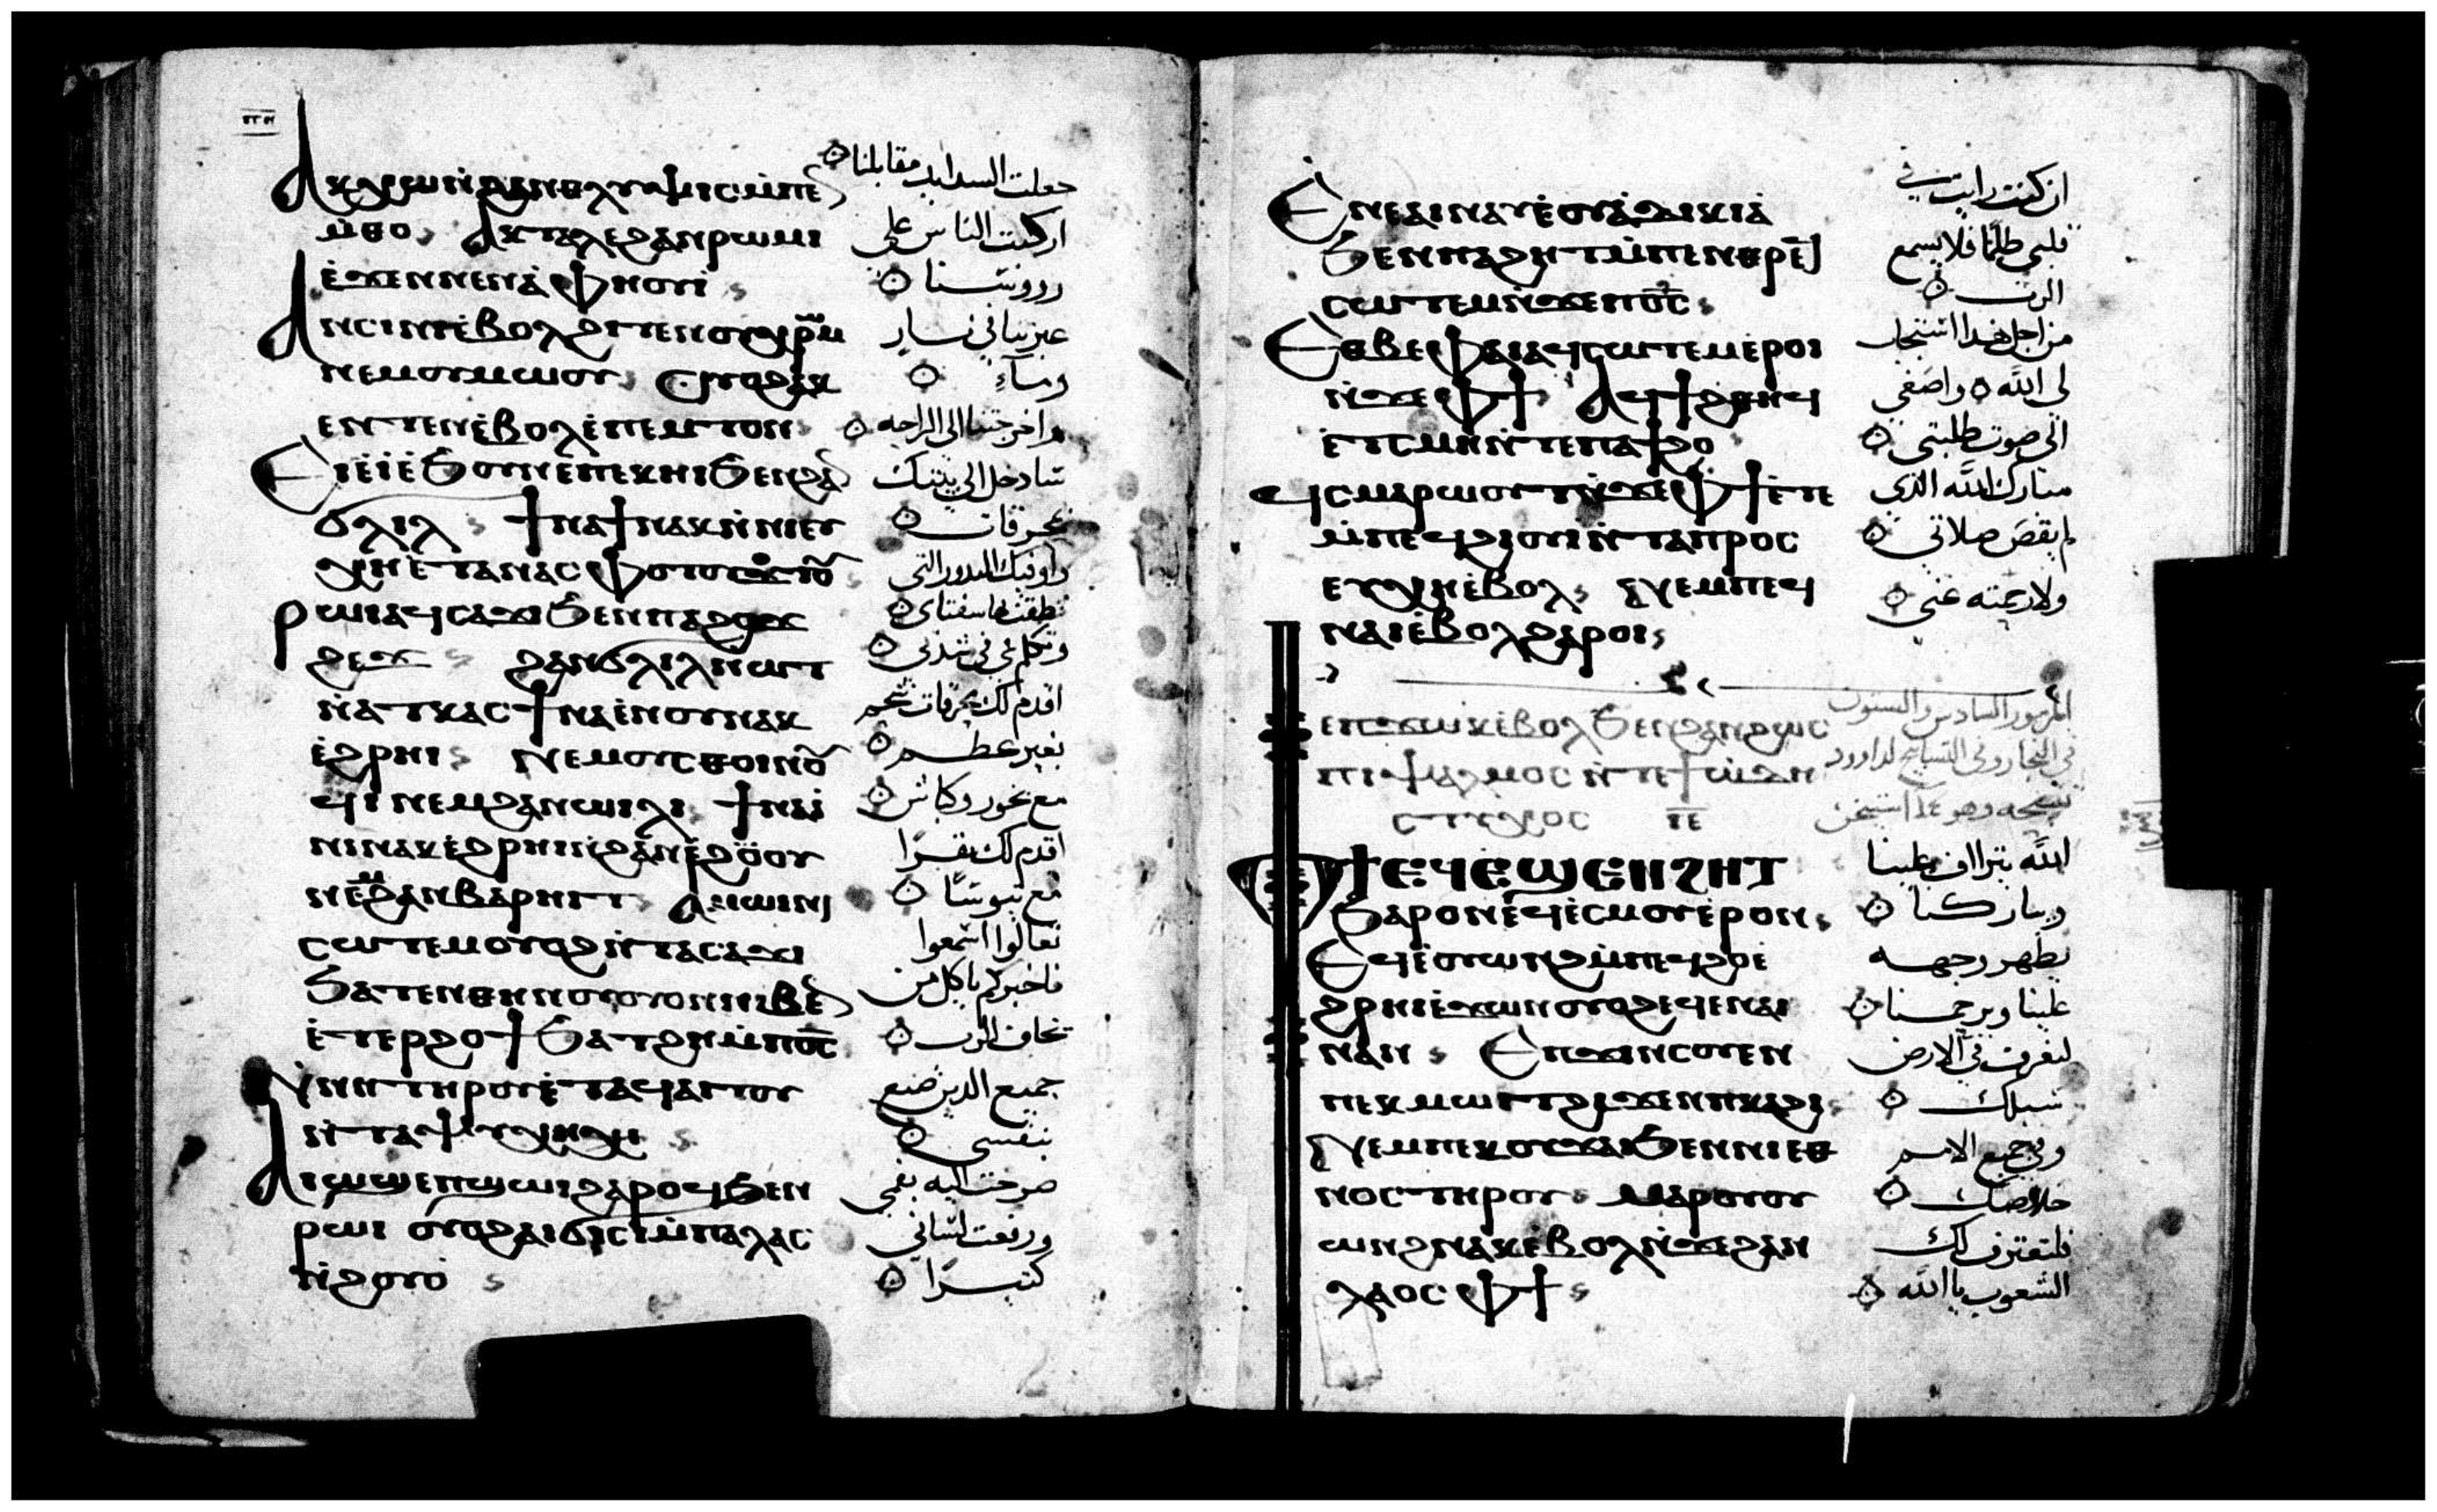 ⲙ̀ⲑⲟ ⲁⲕⲧⲁⲗⲉϩⲁⲛⲣⲱⲙⲓ
ⲉ̀ϫⲉⲛⲛⲉⲛⲁ̀ⲫⲏⲟⲩⲓ̀
ⲁⲛⲥⲓⲛⲓⲉ̀ⲃⲟⲗϩⲓⲧⲉⲛⲟⲩⲭⲣⲱⲙ
ⲛⲉⲙⲟⲩⲙⲱⲟⲩ ⲟⲩⲟϩⲁⲕ
ⲉⲛⲧⲉⲛⲉ̀ⲃⲟⲗⲉ̀ⲡⲉⲙⲧⲟⲛ
ⲉⲓⲉ̀ⲓ̀ⲉ̀ϧⲟⲩⲛⲉⲡⲉⲕⲏⲓϧⲉⲛϩⲁ
ϭⲗⲓⲗ ϯⲛⲁϯⲛⲁⲕⲛ̀ⲛⲓⲉⲩ
ⲭⲏⲉ̀ⲧⲁⲛⲁⲥⲫⲟⲧⲟⲩ
ⲣⲱⲓⲁϥⲥⲁϫⲓϧⲉⲛⲡⲁϩⲟϫ
ϩⲉϫ ϩⲁⲛϭⲗⲓⲗⲛⲱⲧ
ⲛ̀ⲁⲧⲕⲁⲥϯⲛⲁⲉ̀ⲛⲟⲩⲛⲁⲕ
ⲉ̀ϩⲣⲏⲓ ⲛⲉⲙⲟⲩⲥⲑⲟⲓⲛⲟⲩ
ϥⲓ ⲛⲉⲙϩⲁⲛⲱⲓⲗⲓ ϯⲛⲁⲓ̀
ⲛⲓⲛⲁⲕⲉ̀ϩⲣⲏⲓⲛ̀ϩⲁⲛⲉ̀ϩⲱⲟⲩ
ⲛⲉⲙϩⲁⲛⲃⲁⲣⲏⲓⲧ ⲁⲙⲱⲓⲛⲓ
ⲥⲱⲧⲉⲙⲟⲩⲟϩⲛ̀ⲧⲁⲥⲁϫⲓ
ϧⲁⲧⲉⲛⲑⲏⲛⲟⲩⲟⲩⲟⲛⲛⲓⲃⲉ
ⲉ̀ⲧⲉⲣϩⲟϯϧⲁⲧϩⲏⲙ̀ⲡⲟ̅ⲥ̅
ⲛⲏⲧⲏⲣⲟⲩⲉ̀ⲧⲁϥⲁⲓⲧⲟⲩ
ⲛ̀ⲧⲁⲯⲩⲭⲏ
ⲁⲓⲱϣⲉⲡϣⲱⲓϩⲁⲣⲟϥϧⲉⲛ
ⲣⲱⲓ ⲟⲩⲟϩⲁⲓϭⲓⲥⲓⲙ̀ⲡⲁⲗⲁⲥ
ⲛ̀ϩⲟⲩⲟ̀
جعلت الشدايد مقابلنا
اركبت الناس على
رووسنا
عبرنا في نار
وماء
واخرجتنا الى الراحه
سادخل الى بيتك
بمحرقات
واوفيك الندور التى
نطقت بها شفتاى
وتكلم فمى في شدتى
اقدم لك محرقات شحم
بغير عظم
مع بخور وكباش
اقدم لك بقرًا
مع تيوسًا
تعالوا اسمعوا
فاخبركم يا كل من
يخاف الرب
جميع الدى صنع
بنفسى
صرخت اليه بفمى
ورفعت لسانى
كثيرًا
ⲉⲛⲉⲁⲓⲛⲁⲩⲉ̀ⲟⲩⲁ̀ⲇⲓⲕⲓⲁ̀
ϧⲉⲛⲡⲁϩⲏⲧⲙ̀ⲡⲉⲛⲑⲣⲉϥ
ⲥⲱⲧⲉⲙⲛ̀ϫⲉⲡⲟ̅ⲥ̅
ⲉⲑⲃⲉⲫⲁⲓⲁϥⲥⲱⲧⲉⲙⲉ̀ⲣⲟⲓ
ⲛ̀ϫⲉⲫϯ ⲁϥϯϩⲑⲏϥ
ⲉ̀ⲧⲥⲙⲏⲛ̀ⲧⲉⲡⲁϯϩⲟ
ϥⲥⲙⲁⲣⲱⲟⲩⲧⲛ̀ϫⲉⲫϯⲉ̀ⲧⲉ
ⲙ̀ⲡⲉϥϩⲓⲟⲩⲓⲛ̀ⲧⲁⲡⲣⲟⲥ
ⲉⲩⲭⲏⲉ̀ⲃⲟⲗ ⲛⲉⲙⲡⲉϥ
ⲛⲁⲓⲉ̀ⲃⲟⲗϩⲁⲣⲟⲓ
ⲉⲡϫⲱⲕⲉ̀ⲃⲟⲗϧⲉⲛϩⲁⲛϩⲱⲥ
ⲡⲓⲯⲁⲗⲙⲟⲥⲛ̀ⲧⲉϯϣⲱⲇⲏ
ⲥⲧⲩⲭⲟⲥ
ⲫϯⲉϥⲉ̀ϣⲉⲛϩⲏⲧ
ϧⲁⲣⲟⲛⲉϥⲉ̀ⲥⲙⲟⲩⲉ̀ⲣⲟⲛ
ⲉϥⲉ̀ⲟⲩⲱⲛϩⲙ̀ⲡⲉϥϩⲟⲉ̀
ϩⲣⲏⲓⲉ̀ϫⲱⲛⲟⲩⲟϩⲉϥⲉⲛⲁⲓ
ⲛⲁⲛ ⲉⲡϫⲓⲛⲥⲟⲩⲉⲛ
ⲡⲉⲕⲙⲱⲓⲧϩⲓϫⲉⲛⲡⲕⲁϩⲓ
ⲛⲉⲙⲡⲉⲕⲟⲩϫⲁⲓϧⲉⲛⲛⲓⲉⲑ
ⲛⲟⲥⲧⲏⲣⲟⲩ ⲙⲁⲣⲟⲩⲟⲩ
ⲱⲛϩⲛⲁⲕⲉ̀ⲃⲟⲗⲛ̀ϫⲉϩⲁⲛ
ⲗⲁⲟⲥⲫϯ
ان كنت رايت في
قلبى ظلمًا فلا يسمع
الرب
من اجل هدا استجاب
لى الله واصغى
الى صوت طلبتى
مبارك الله الذى
لم يقص صلاتى
ولا رحمته عنى
المزمور السادس والستون
الله يتراف علينا
ويباركنا
يظهر وجهه
علينا ويرحمنا
لنعرف في الارض
سبلك
وفي جميع الامم
خلاصك
فلتعترف لك
الشعوب يا الله